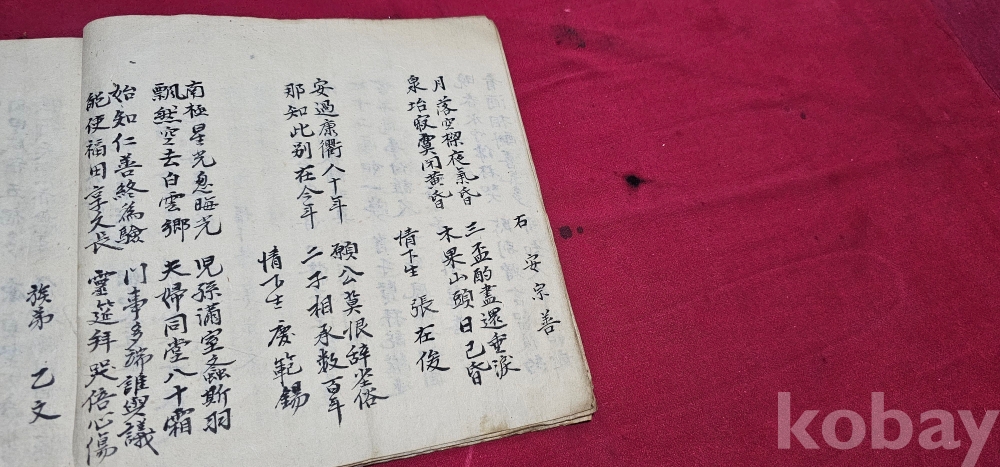 右 安宗善
月落空樑夜氣昏 三盃酌盡還垂淚
泉坮寂寞閉黃昏 木果山頭日已昏
情下生 張在俊
安過康衢八十年 願公莫恨辞塵俗
那知此別在今年 二子相承数百年
情下生 慶範錫
南極星光忽晦光 児孫滿室螽斯羽
飄然空去白雲鄉 夫婦同堂八十霜
始知仁善終為驗 門事多端誰與議
能使福田享久長 靈筵拜哭倍心傷
族弟 乙文
kobay